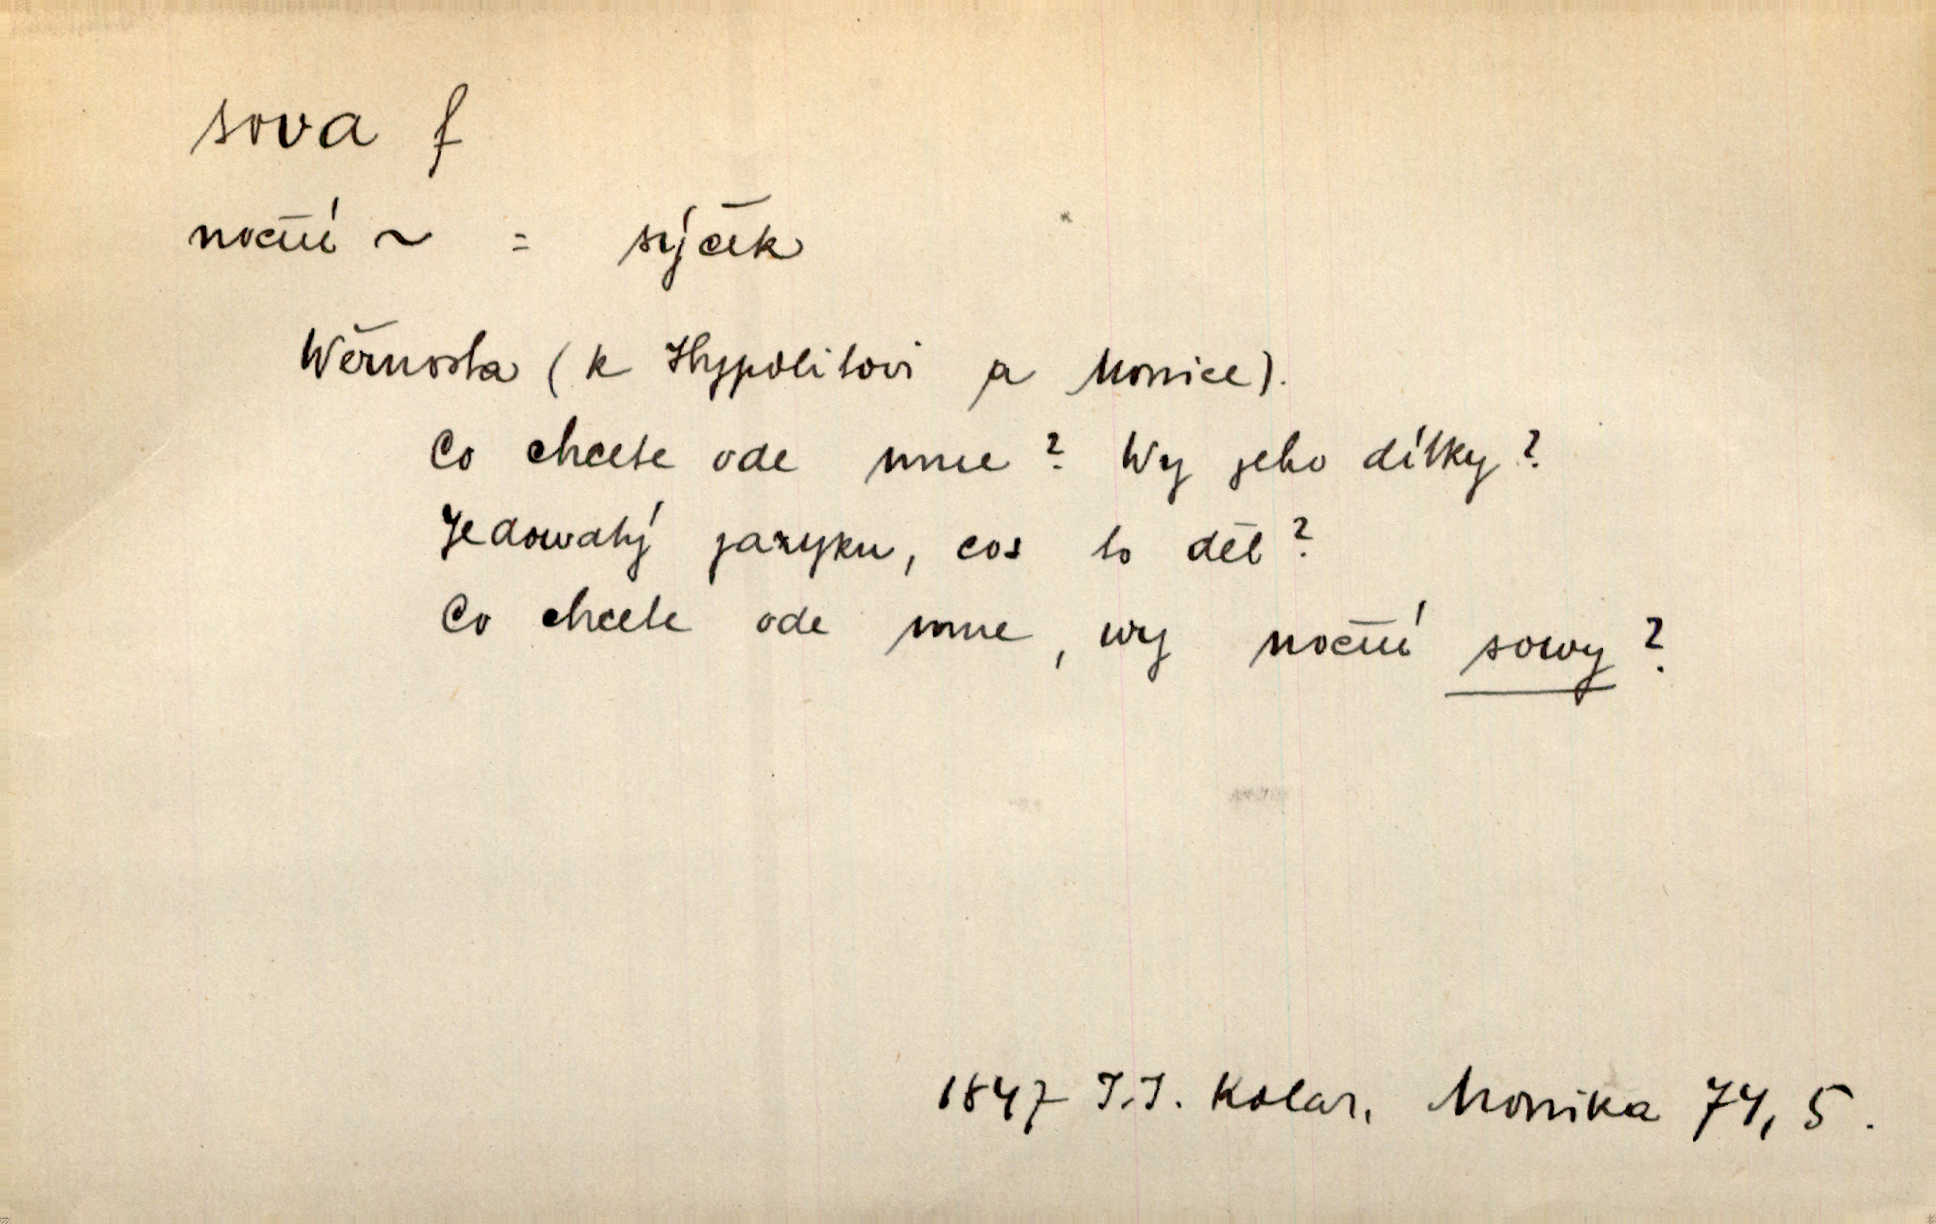 sova f
noční ~ = sýček
Wěrnosta (k Hypolitovi a Monice).
Co chcete ode mne? Wy jeho dítky?
Jedowatý jazyku, cos to děl?
Co chcete ode mne, wy noční sowy?
1847 J.J. Kolar, Monika 74, 5.